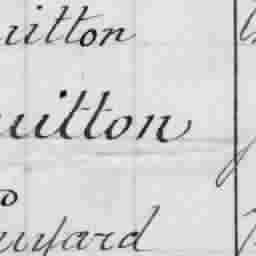 uitton
uitton
o
uyard